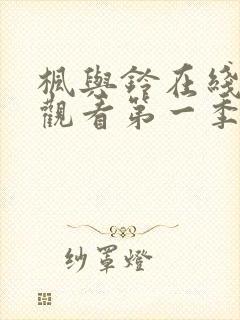 楓與鈴在綫
觀看第一季
纱罩燈